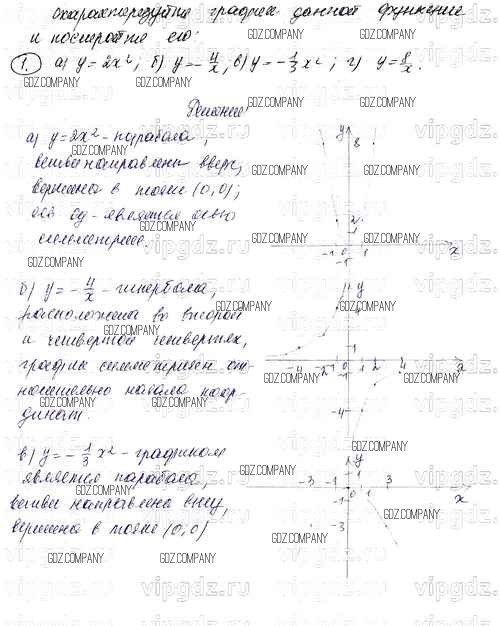 охарактеризуйте график данной функции
и постройте его:
1. а) y=2x²; б) y=-4/x, в) y=-1/3x²; г) y=8/x.
Решение
а) y=2x²-парабола,
ветви направлены вверх,
вершина в точке (0,0);
ось оу-является осью
симметрии.
y
8
2
1
-1 0 1 x
-1
б) y=-4/x - гипербола,
расположена во второй
и четвертой четвертях,
график симметричен от-
носительно начала коор-
динат.
y
4
1
-4 -2 -1 0 1 2 4
-1
-4
в) y=-1/3x² - графиком
является парабола,
ветви направлены вниз,
вершина в точке (0,0)
y
1
-3 -1 0 1 3
-1 x
-3
GDZ.COMPANY
vipgdz.ru